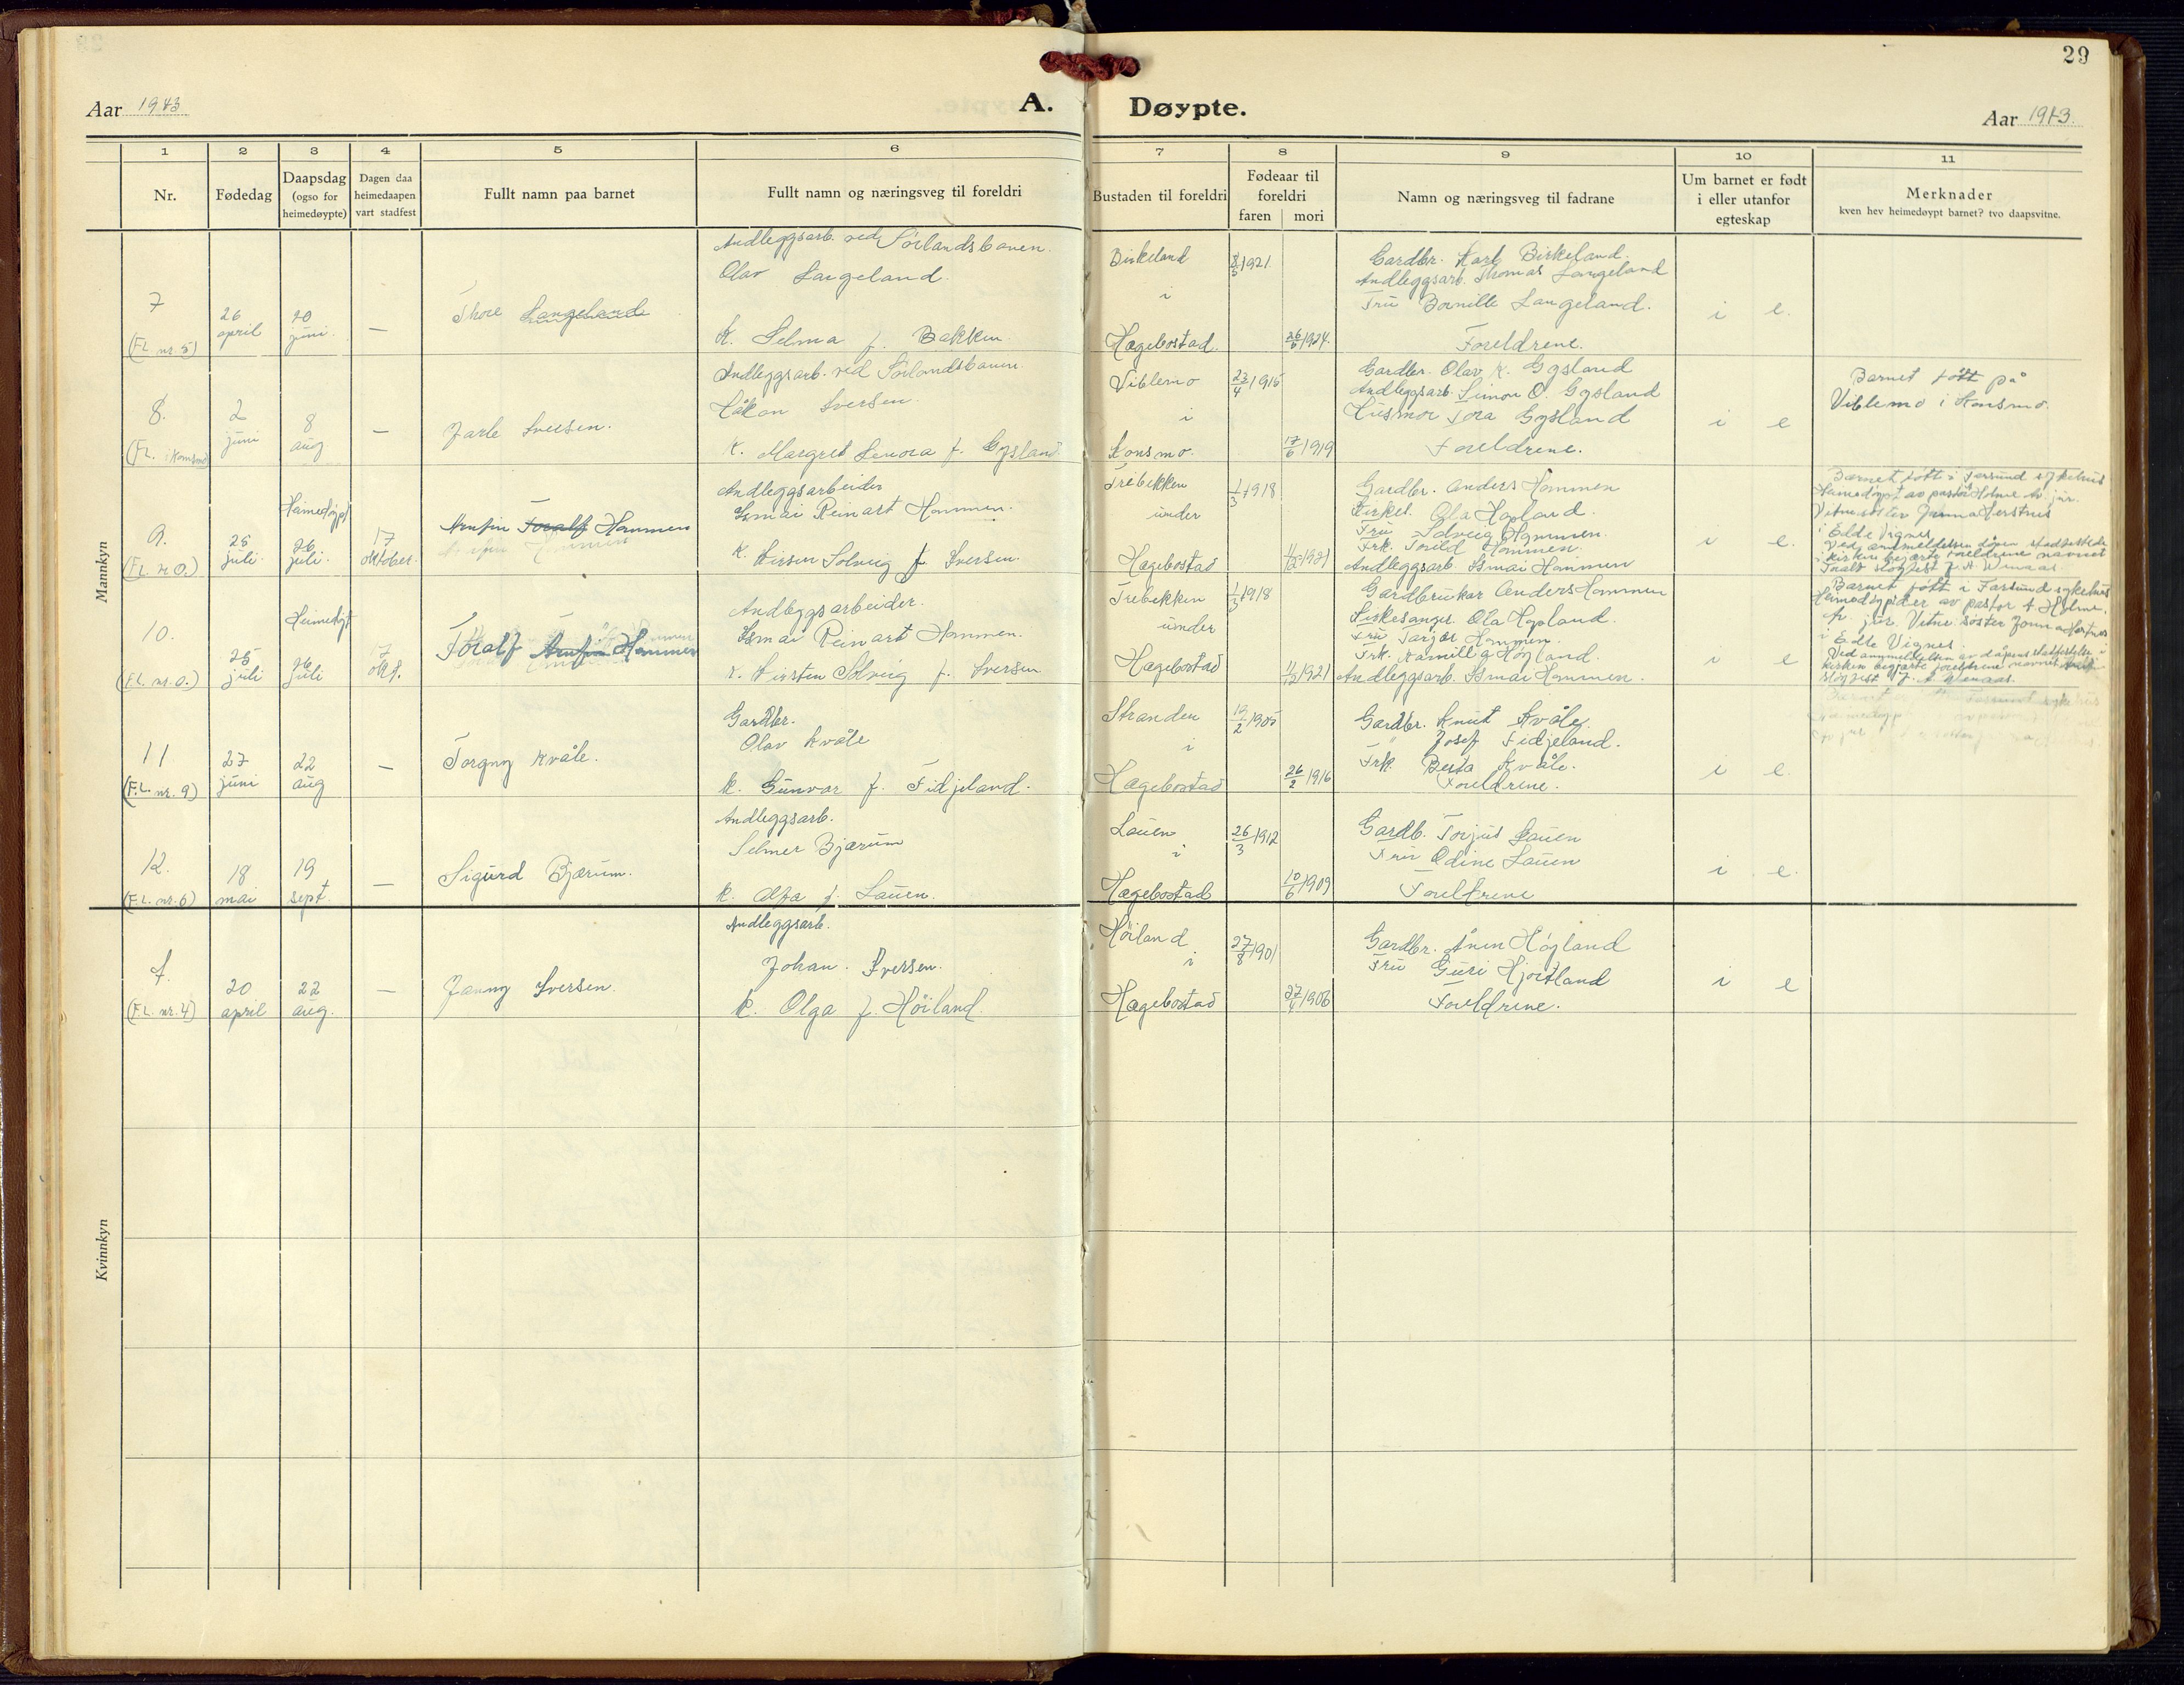 29
Aar 1943
A. Døypte.
Aar 1943.
1 2 3 4 5 6 7 8 9 10 11
Nr.
Fødedag
Daapsdag
(ogso for
heimedøypte)
Dagen daa
heimedaapen
vart stadfest
Fullt namn paa barnet
Fullt namn og næringsveg til foreldri
Bustaden til foreldri
Fødeaar til
foreldri
faren mori
Namn og næringsveg til fadrane
Um barnet er født
i eller utanfor
egteskap
Merknader
kven hev heimedøypt barnet? tvo daapsvitne.
Mannkyn
7
(F.L. nr. 5)
26
april
20
juni
—
Thore Langeland
Andleggsarb. ved Sørlandsbanen.
Olav Langeland.
k. Selma f. Bakken
Birkeland
i
Hægebostad.
8/5 1921
26/6 1924.
Gardbr. Karl Birkeland.
Andleggsarb. Thomas Langeland
Fru Bornille Langeland.
Foreldrene.
i e.
8.
(F.L. i Konsmo)
2
juni
8
aug
—
Jarle Iversen.
Andleggsarb. ved Sørlandsbanen
Håkon Iversen.
k. Margret Lenora f. Gysland
Viblemo
i
Konsmo.
23/4 1915
17/6 1919
Gardbr. Olav K. Gysland
Andleggsarb. Simon O. Gysland
Husmor Tora Gysland
Foreldrene.
i e
Barnet født på
Viblemo i Konsmo.
9.
(F.L. nr 0.)
25
juli.
Heimedøypt
26
juli.
17
oktober.
Arnfin Toralf Hommen
Andleggsarbeider
Ismai Reinart Hommen.
k. Kirsten Solveig f. Iversen.
Trebekken
under
Hægebostad
1/3 1918
11/12 1921
Gardbr. Anders Hommen
Kirkes. Ola Hopland.
Fru Solveig Hommen.
Frk. Torild Hommen.
Andleggsarb. Ismai Hommen
i e.
Barnet født i Farsund sykehus
Heimedøpt av pastor Holme Ar. jùr.
Vitne søster Jonna Herstnes
i Edle Vignes
Ved anmeldelsen dåpen stadfestelse
i kirken begjærte foreldrene navnet
Toralf sløyfest J. A. Wenaas.
10.
(F.L. nr. 0.)
25
juli
Heimedøpt
26
juli
17
okt.
Toralf Arnfin Hommen
Andleggsarbeider.
Ismai Reinart Hommen.
k. Kirsten Solveig f. Iversen
Trebekken
under
Hægebostad
1/3 1918
11/12 1921
Gardbrukar Anders Hommen
Kirkesanger Ola Hopland.
Fru Tarjer Hommen.
Frk. Kamilla Høyland.
Andleggsarb. Ismai Hommen.
i e
Barnet født i Farsund sykehus
Heimedøpt av pastor Holme,
Ar. jùr. Vitne søster Jonna Herstnes
i Edle Vignes.
Ved anmeldelsen av dåpens stadfestelse i
kirken begjærte foreldrene navnet Arnfin
sløyfest J. A. Wenaas.
11
(F.L. nr. 9)
27
juni
22
aug
—
Torgny Kvåle.
Gardbr.
Olav Kvåle
k. Gunvor f. Fidjeland.
Stranden
i
Hægebostad
19/2 1905
26/2 1916
Gardbr. Knut Kvåle.
" Josef Fidjeland.
Frk. Berta Kvåle.
Foreldrene.
i e.
12.
(F.L. nr. 6)
18
mai
19
sept.
—
Sigurd Bjærum.
Andleggsarb.
Selmer Bjærum
k. Alfa f. Lauen.
Lauen
i
Hægebostad
26/3 1912
10/6 1909
Gardb. Torjus Lauen
Fru Odine Lauen
Foreldrene
i e.
Kvinnkyn
7.
(F.L. nr. 4)
20
april
22
aug.
—
Janny Iversen.
Andleggsarb.
Johan. Iversen.
k. Olga f. Høiland.
Høiland
i
Hægebostad
27/8 1901
27/4 1906
Gardbr. Ånen Høyland
Fru Guri Hjortland
Foreldrene.
i e